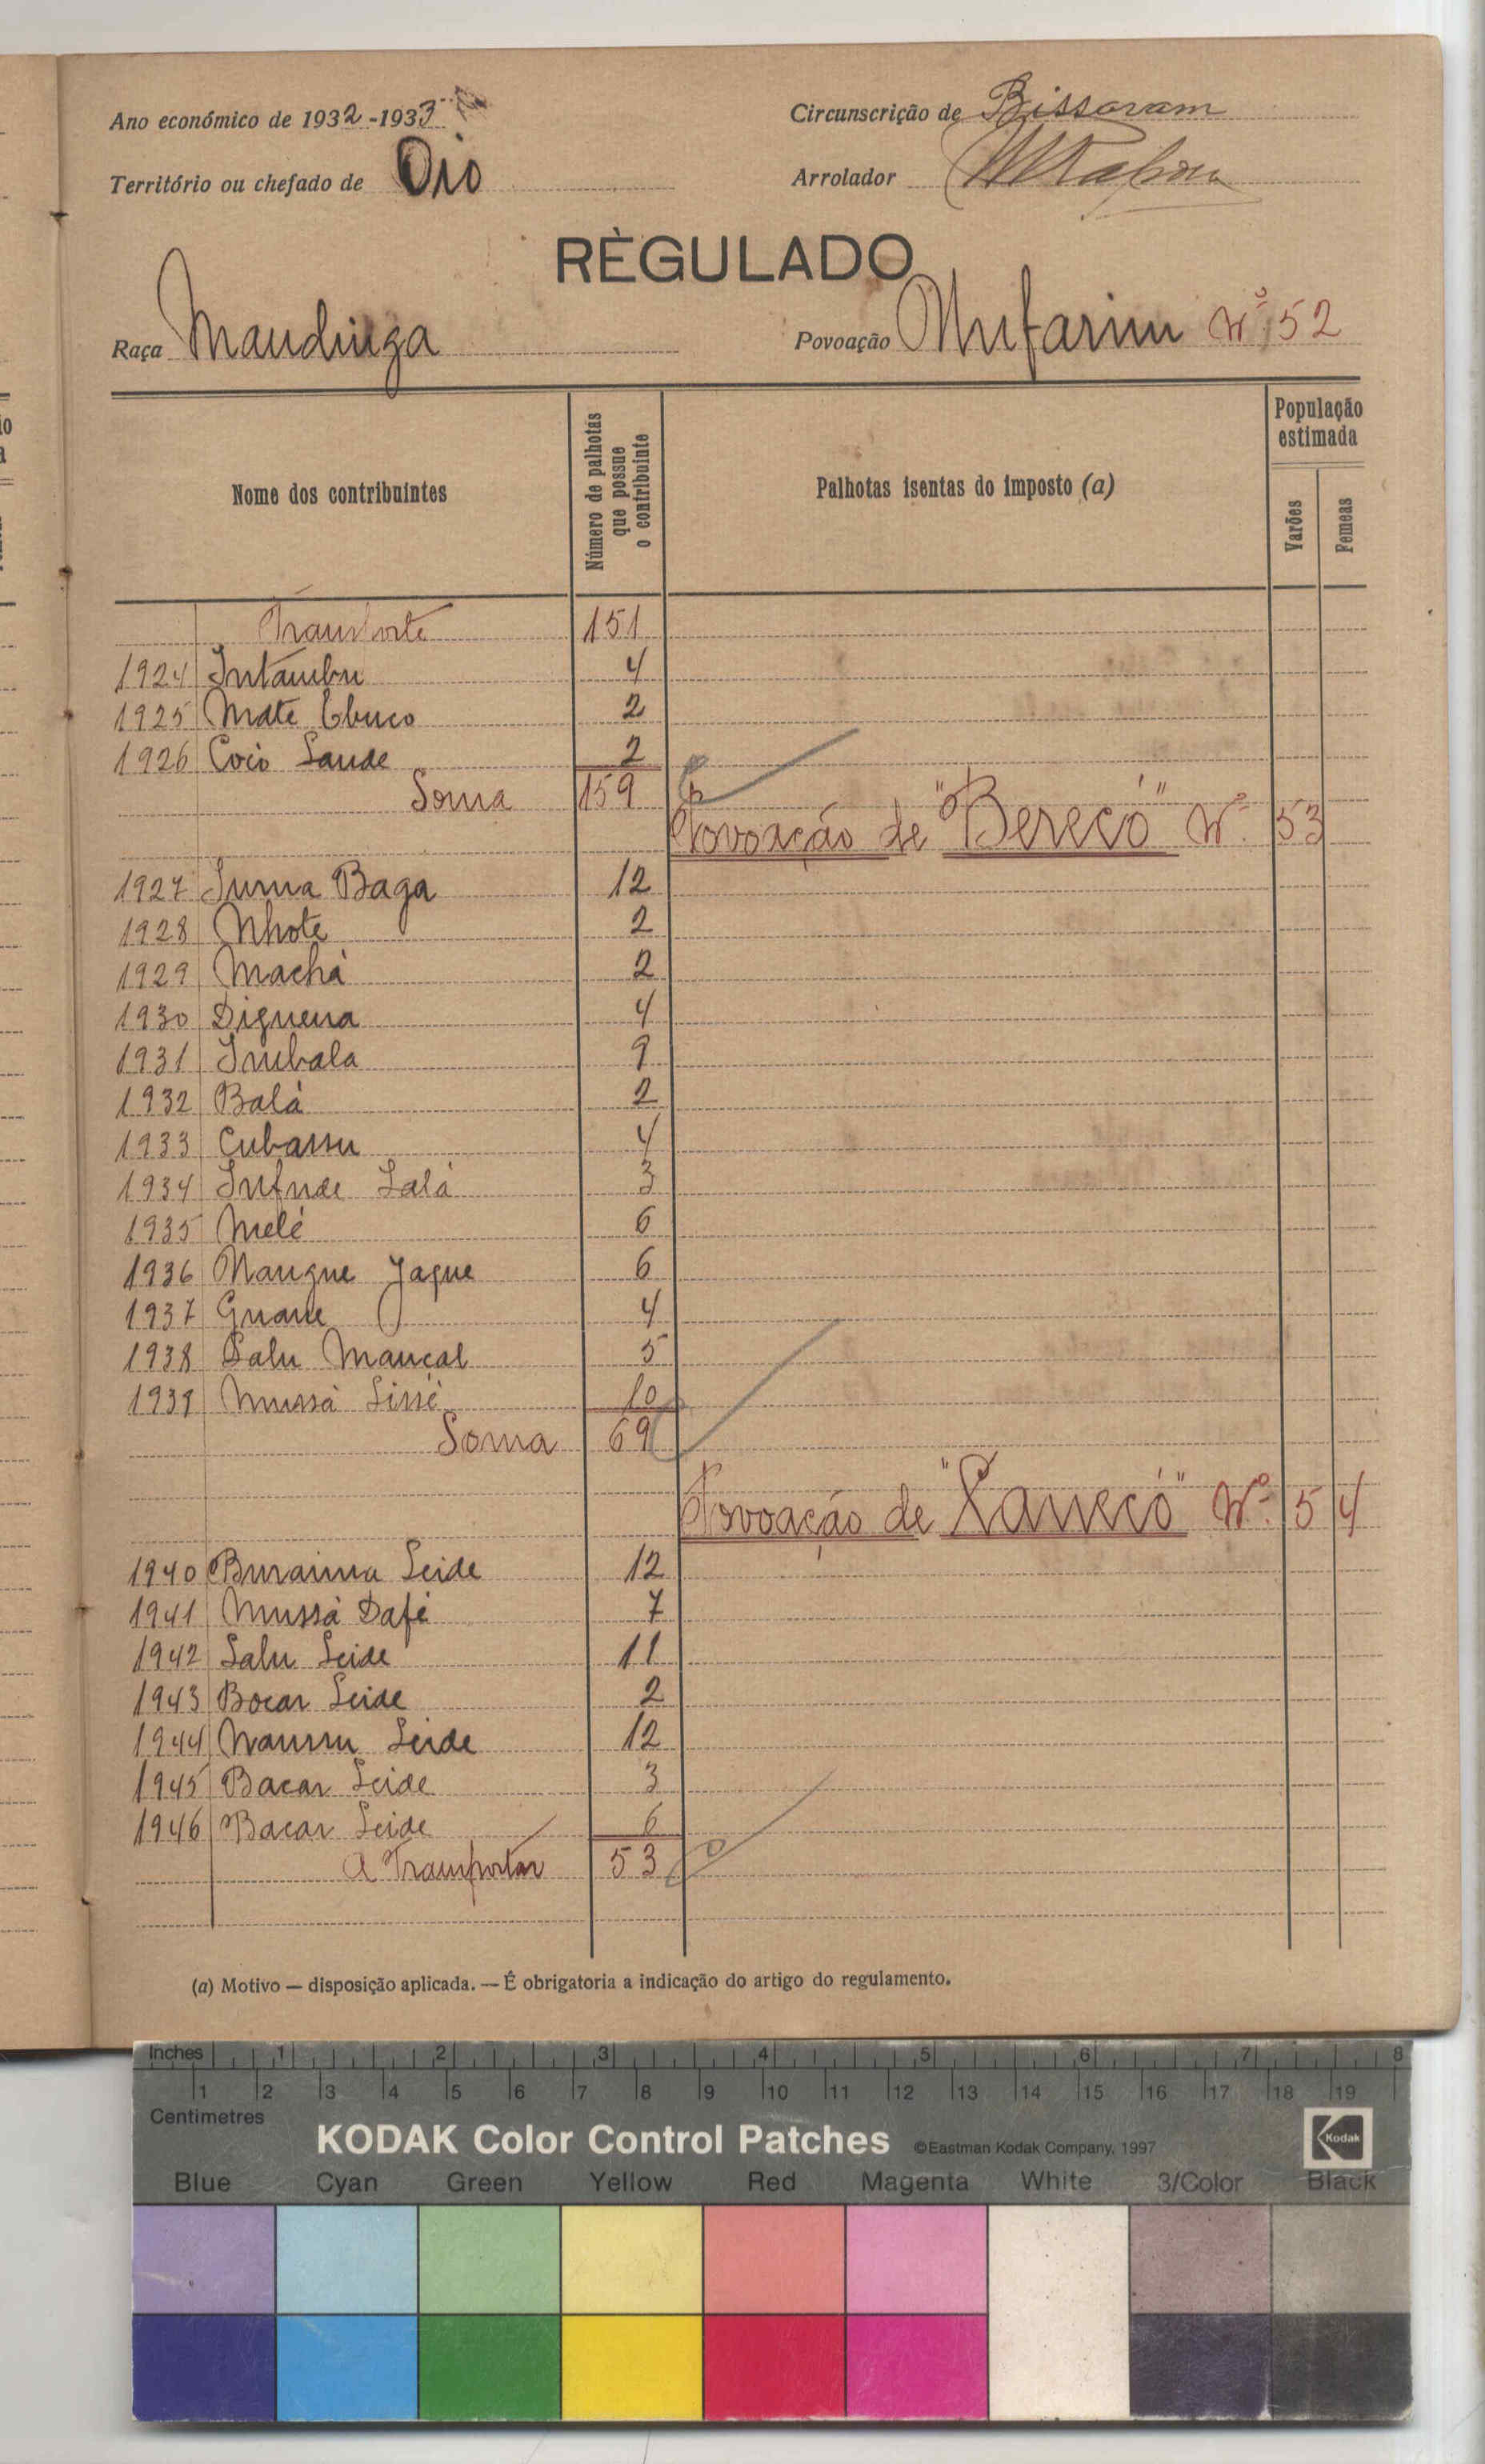 Ano económico de 1932-1933
Circunscrição de Bissoram
Território ou chefado de Oio
Arrolador
RÈGULADO
Raça Mandinga
Povoação Nº 52
Nome dos contribuintes
Número de palhotas que possue o contribuinte
Palhotas isentas do imposto (a)
População estimada
Varões
Femeas
Transporte 151
1924 Intambu 4
1925 Mate 2
1926 Coió Sande 2
Soma 159
Povoação de "Berecó" Nº 53
1927 Juma Baga 12
1928 Nhote 2
1929 Machá 2
1930 Diguena 4
1931 Imbala 9
1932 Balá 2
1933 Cubassu 4
1934 Infude Lalá 3
1935 Melé 6
1936 Nangue Jaque 6
1937 Guane 4
1938 Salu Mançal 5
1939 Mussá Sissé 10
Soma 69
Povoação de "Lanecó" Nº 54
1940 Buraima Seide 12
1941 Mussá Dafé 7
1942 Salu Seide 11
1943 Bocar Seide 2
1944 Nanssu Seide 12
1945 Bacar Seide 3
1946 Bacar Seide 6
A Transportar 53
(a) Motivo — disposição aplicada. — É obrigatoria a indicação do artigo do regulamento.
Inches 1 2 3 4 5 6 7 8
1 2 3 4 5 6 7 8 9 10 11 12 13 14 15 16 17 18 19
Centimetres
KODAK Color Control Patches ©Eastman Kodak Company, 1997 Kodak
Blue Cyan Green Yellow Red Magenta White 3/Color Black